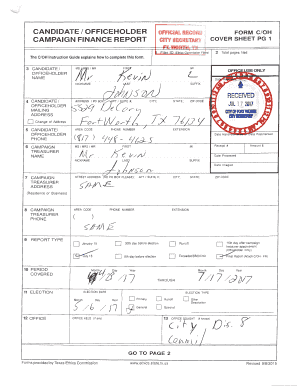 CANDIDATE / OFFICEHOLDER
CAMPAIGN FINANCE REPORT
OFFICIAL RECORD
CITY SECRETARY
FT. WORTH, TX
FORM C/OH
COVER SHEET PG 1
The C/OH Instruction Guide explains how to complete this form.
2 Total pages filed:
3 CANDIDATE /
OFFICEHOLDER
NAME
MS / MRS / MR
FIRST
MI
Mr Kevin
NICKNAME
LAST
SUFFIX
Johnson
OFFICE USE ONLY
RECEIVED
CITY OF FORT WORTH
CITY SECRETARY
4 CANDIDATE /
OFFICEHOLDER
MAILING
ADDRESS
Change of Address
STATE;
ZIP CODE
Fort Worth, TX
5 CANDIDATE/
OFFICEHOLDER
PHONE
AREA CODE
PHONE NUMBER
EXTENSION
(817)
6 CAMPAIGN
TREASURER
NAME
MS / MRS / MR
FIRST
MI
Mr Kevin
NICKNAME
LAST
SUFFIX
Johnson
Receipt #
Amount $
Date Processed
Date Imaged
7 CAMPAIGN
TREASURER
ADDRESS
(Residence or Business)
STATE;
ZIP CODE
SAME
8 CAMPAIGN
TREASURER
PHONE
AREA CODE
PHONE NUMBER
EXTENSION
( )
SAME
9 REPORT TYPE
January 15
30th day before election
Runoff
15th day after campaign
treasurer appointment
(Officeholder Only)
July 15
8th day before election
Exceeded $500 limit
Final Report (Attach C/OH - FR)
10 PERIOD
COVERED
Month
Day
Year
THROUGH
Month
Day
Year
11 ELECTION
ELECTION DATE
ELECTION TYPE
Month
Day
Year
5/6/17
Primary
Runoff
Other
Description
General
Special
12 OFFICE
OFFICE HELD (if any)
13 OFFICE SOUGHT (if known)
City Dis. 8
Council
GO TO PAGE 2
Forms provided by Texas Ethics Commission
www.ethics.state.tx.us
Revised 9/8/2015